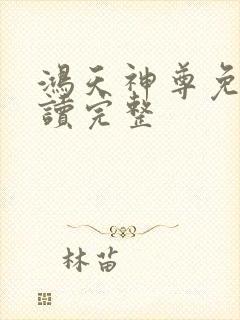 鴻天神尊免
讀完整
林苗